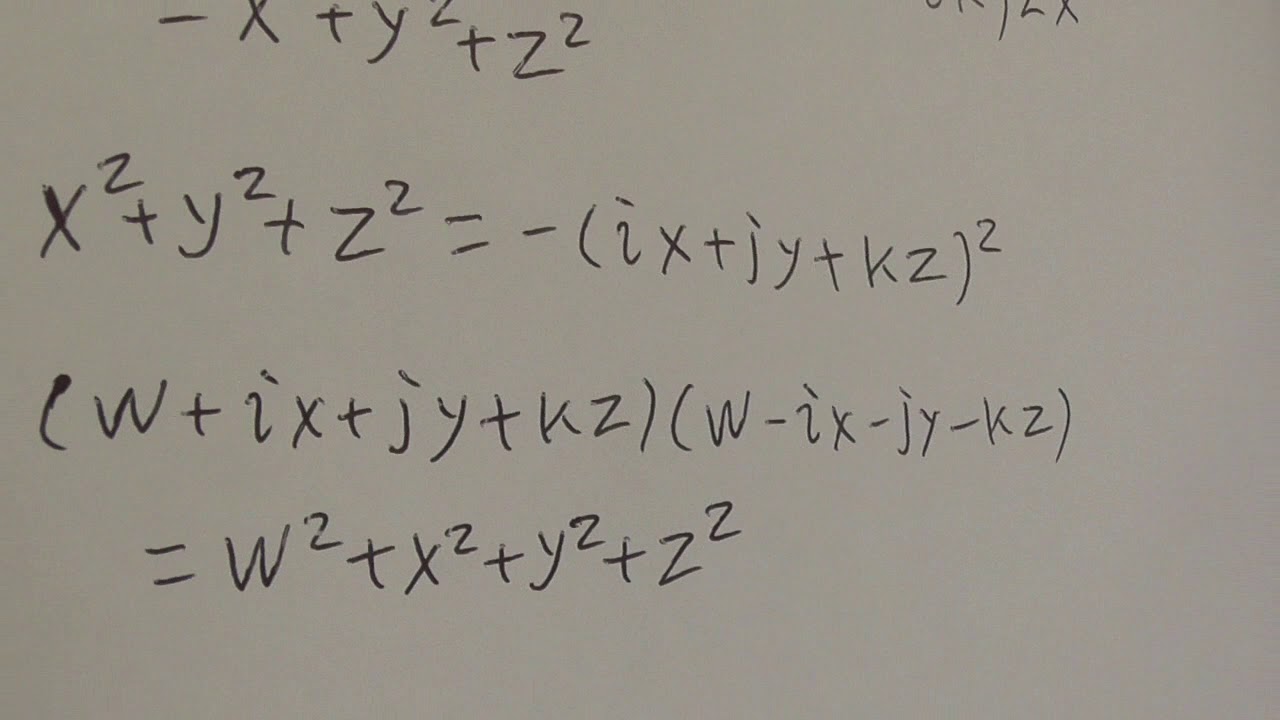 - x + y² + z²
x² + y² + z² = -(ix + jy + kz)²
(w + ix + jy + kz)(w - ix - jy - kz)
= w² + x² + y² + z²